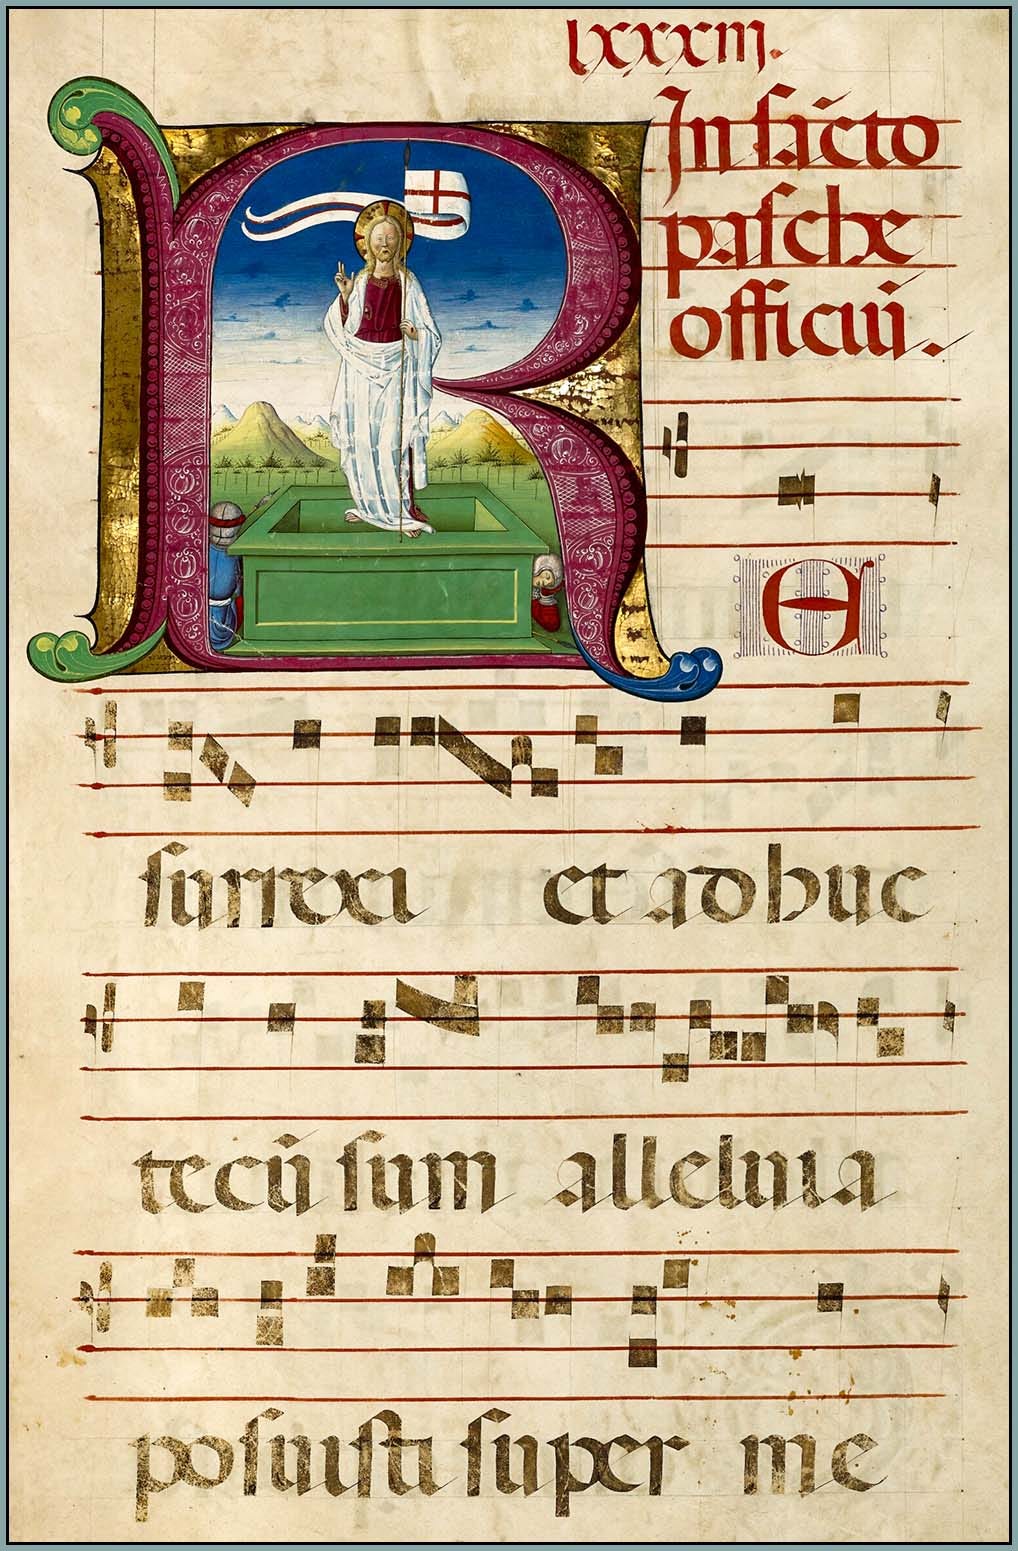 lxxxiii.
In ſācto
paſche
officiū.
R E
ſurrexi et adhuc
tecū ſum alleluia
poſuiſti ſuper me